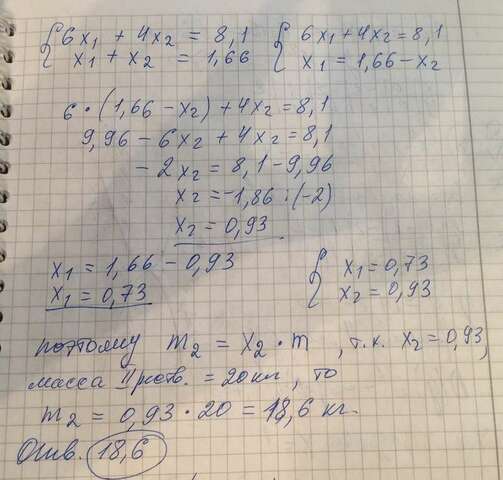 {6x₁ + 4x₂ = 8,1 {6x₁ + 4x₂ = 8,1
x₁ + x₂ = 1,66 x₁ = 1,66 - x₂
6 · (1,66 - x₂) + 4x₂ = 8,1
9,96 - 6x₂ + 4x₂ = 8,1
- 2x₂ = 8,1 - 9,96
x₂ = -1,86 : (-2)
x₂ = 0,93
x₁ = 1,66 - 0,93 {x₁ = 0,73
x₁ = 0,73 x₂ = 0,93
поэтому m₂ = x₂ · m, т.к. x₂ = 0,93,
масса II раств. = 20 кг, то
m₂ = 0,93 · 20 = 18,6 кг.
Отв. 18,6